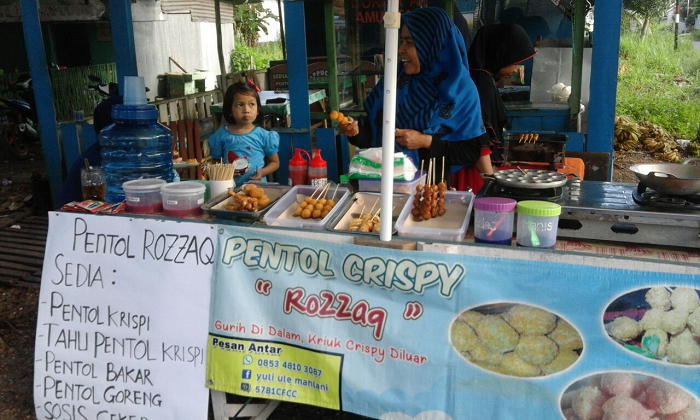 PENTOL ROZZAQ
SEDIA :
- PENTOL KRISPI
- TAHU PENTOL KRISPI
- PENTOL BAKAR
- PENTOL GORENG
- SOSIS
PENTOL CRISPY
" RoZZaq "
Gurih Di Dalam, Kriuk Crispy Diluar
Pesan Antar
0853 4810 3087
yuli ule mahlani
57B1CFCC